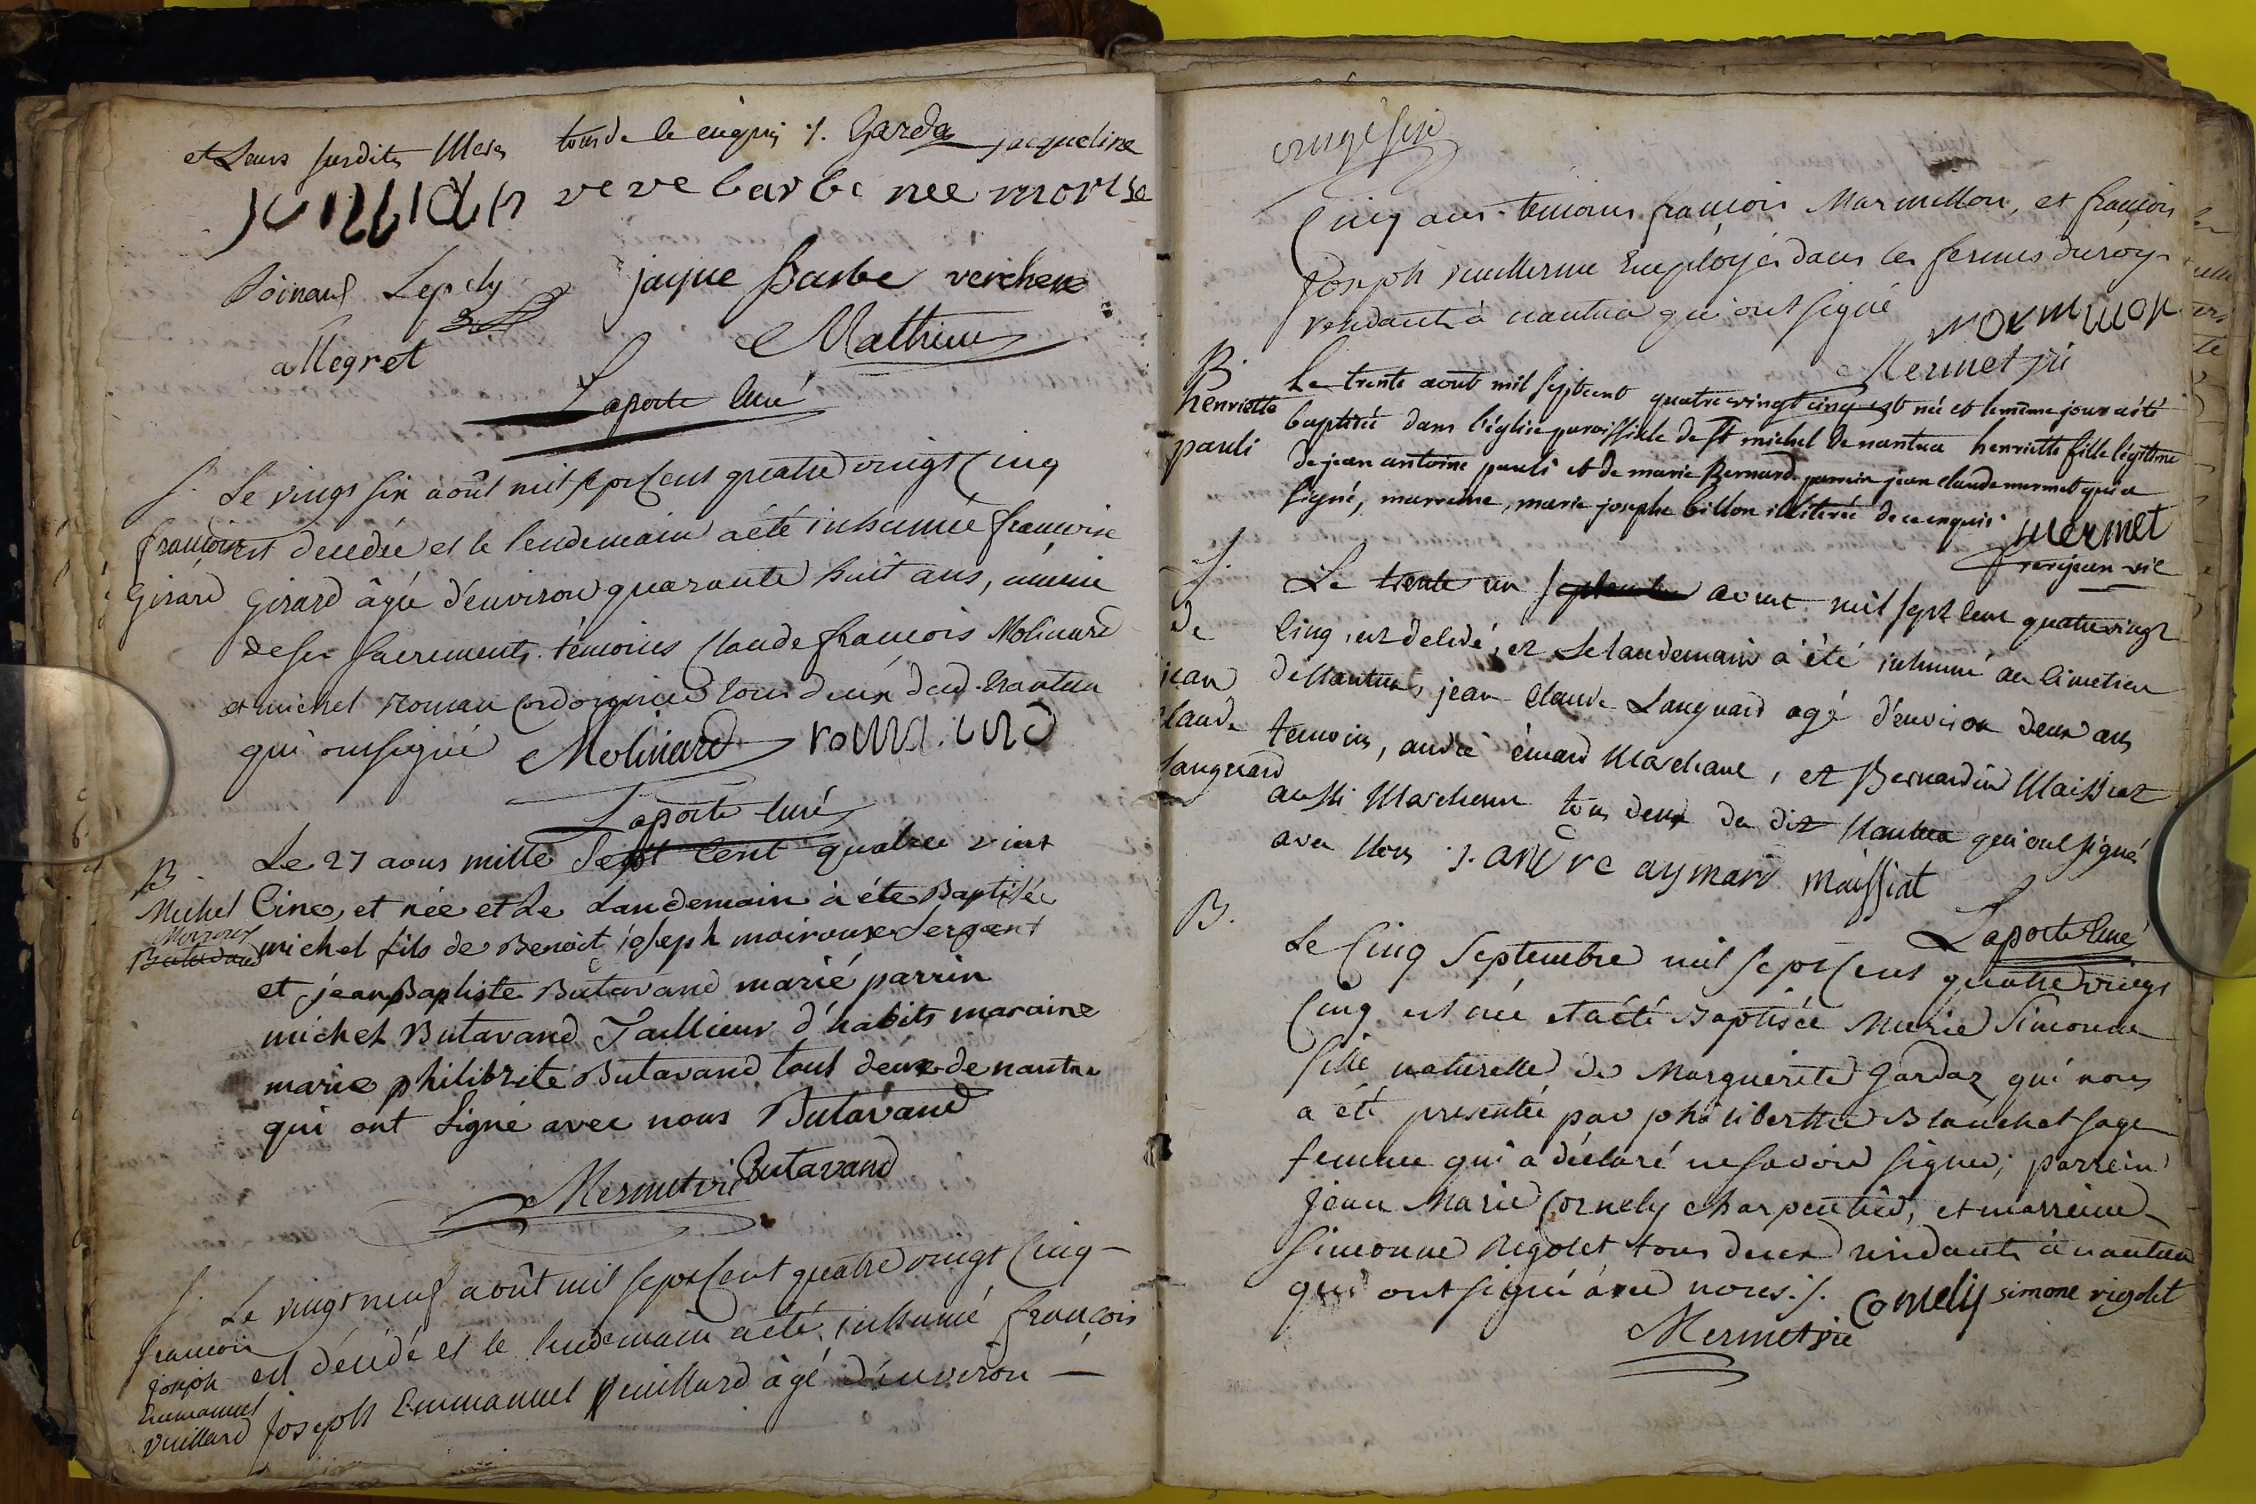 et Leurs susdites Meres tous de ce enquis ./. Garda jacqueline
veve barbe nee
Lepely jaque Barbe verchere
allegret Mathieu
Laporte Curé
S. Le vingt six août mil sept Cent quatre vingt Cinq
françoise est decedée et le lendemain a été inhumée françoise
Girard Girard âgée d'environ quarante huit ans, munie
de ses sacrements. témoins Claude françois Molinard
et michel roman cordonnier tous deux dud. Nantua
qui ont signé Molinard
Laporte Curé
B. Le 27 aous mille Sept Cent quatre vint
Michel Cinq, et née et Le Landemain à éte Baptisée
Moiroux michel fils de Benoit joseph moiroux Sergent
Butavand et jean Baptiste Butavand marié parrin
michel Butavand Taillieur d'habits maraine
marie philibrite Butavand tout deux de nantua
qui ont Signé avec nous Butavand
Mermet vic Butavand
S. Le vingt neuf août mil sept Cent quatre vingt Cinq
françois est décédé et le lendemain a été inhumé françois
joseph Joseph Emmanuel Vuillard âgé d'environ
Emmanuel
Vuillard
Cinq ans. temoins françois Marmillon, et françois
Joseph vuillerme Employés dans les fermes du roy
residants à nantua qui ont signé
Mermet vic
B. Le trente août mil sept cent quatre vingt cinq est née et le même jour a été
henriette baptisée dans l'église paroissiale de St michel de nantua henriette fille légitime
pauli de jean antoine pauli et de marie Bernard. parrain jean claude mermet qui a
signé, marraine, marie josephe billon illiterée de ce enquis. mermet
frerejean vic
S. Le trente un septembre aoust mil sept cent quatre vingt
de Cinq, est décédé, et Le landemain a été inhumé au Cimetiere
jean de Nantua, jean Claude Languard agé d'environ deux ans
claude temoins, andré émard Marchand, et Bernardin Maissiat
languard aussi Marchand tous deux du dit Nantua qui ont signés
avec Nous ./. andre aymard maissiat
Laporte Curé
B. Le Cinq Septembre mil sept Cent quatre vingt
Cinq est née et a été Baptisée Marie Simonne
fille naturelle de Marguerite Gardaz qui nous
a été presentée par philiberthe Blanchet sage
femme qui a déclaré ne savoir signer; parrein
Jean Marie Cornely charpentier, et marreine
Simonne Rigolet tous deux residants à nantua
qui ont signé avec nous ./. Cornely simone rigolet
Mermet vic